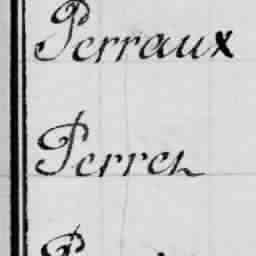 Perraux
Perren